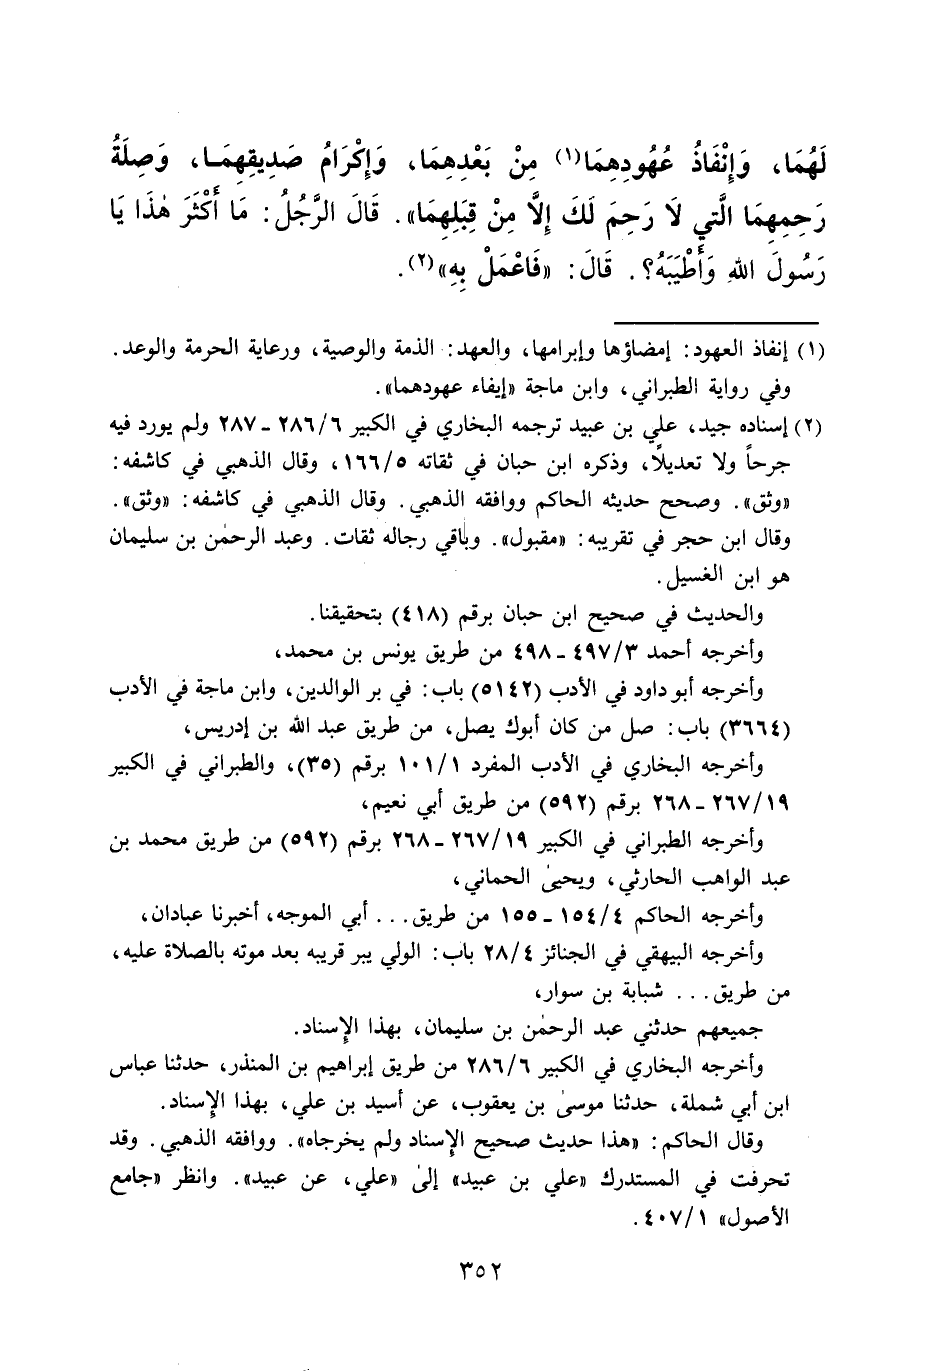 لَهُمَا، وَإِنْفَاذُ عُهُودِهِمَا(١) مِنْ بَعْدِهِمَا، وَإِكْرَامُ صَدِيقِهِمَا، وَصِلَةُ
رَحِمِهِمَا الَّتِي لَا رَحِمَ لَكَ إِلَّا مِنْ قِبَلِهِمَا». قَالَ الرَّجُلُ: مَا أَكْثَرَ هٰذَا يَا
رَسُولَ اللهِ وَأَطْيَبَهُ؟. قَالَ: «فَاعْمَلْ بِهِ»(٢).
(١) إنفاذ العهود: إمضاؤها وإبرامها، والعهد: الذمة والوصية، ورعاية الحرمة والوعد.
وفي رواية الطبراني، وابن ماجة «إيفاء عهودهما».
(٢) إسناده جيد، علي بن عبيد ترجمه البخاري في الكبير ٢٨٦/٦ - ٢٨٧ ولم يورد فيه
جرحاً ولا تعديلاً، وذكره ابن حبان في ثقاته ١٦٦/٥، وقال الذهبي في كاشفه:
«وثق». وصحح حديثه الحاكم ووافقه الذهبي. وقال الذهبي في كاشفه: «وثق».
وقال ابن حجر في تقريبه: «مقبول». وباقي رجاله ثقات. وعبد الرحمٰن بن سليمان
هو ابن الغسيل.
والحديث في صحيح ابن حبان برقم (٤١٨) بتحقيقنا.
وأخرجه أحمد ٤٩٧/٣ - ٤٩٨ من طريق يونس بن محمد،
وأخرجه أبو داود في الأدب (٥١٤٢) باب: في بر الوالدين، وابن ماجة في الأدب
(٣٦٦٤) باب: صل من كان أبوك يصل، من طريق عبد الله بن إدريس،
وأخرجه البخاري في الأدب المفرد ١٠١/١ برقم (٣٥)، والطبراني في الكبير
٢٦٧/١٩ - ٢٦٨ برقم (٥٩٢) من طريق أبي نعيم،
وأخرجه الطبراني في الكبير ٢٦٧/١٩ - ٢٦٨ برقم (٥٩٢) من طريق محمد بن
عبد الواهب الحارثي، ويحيىٰ الحماني،
وأخرجه الحاكم ١٥٤/٤ - ١٥٥ من طريق... أبي الموجه، أخبرنا عبادان،
وأخرجه البيهقي في الجنائز ٢٨/٤ باب: الولي يبر قريبه بعد موته بالصلاة عليه،
من طريق... شبابة بن سوار،
جميعهم حدثني عبد الرحمٰن بن سليمان، بهذا الإسناد.
وأخرجه البخاري في الكبير ٢٨٦/٦ من طريق إبراهيم بن المنذر، حدثنا عباس
ابن أبي شملة، حدثنا موسىٰ بن يعقوب، عن أسيد بن علي، بهذا الإسناد.
وقال الحاكم: «هذا حديث صحيح الإسناد ولم يخرجاه». ووافقه الذهبي. وقد
تحرفت في المستدرك «علي بن عبيد» إلىٰ «علي، عن عبيد». وانظر «جامع
الأصول» ٤٠٧/١.
٣٥٢